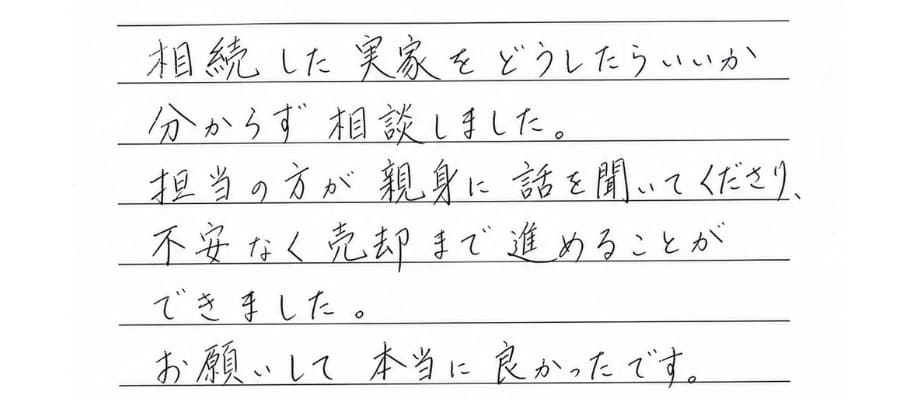 相続した実家をどうしたらいいか
分からず相談しました。
担当の方が親身に話を聞いてくださり、
不安なく売却まで進めることが
できました。
お願いして本当に良かったです。